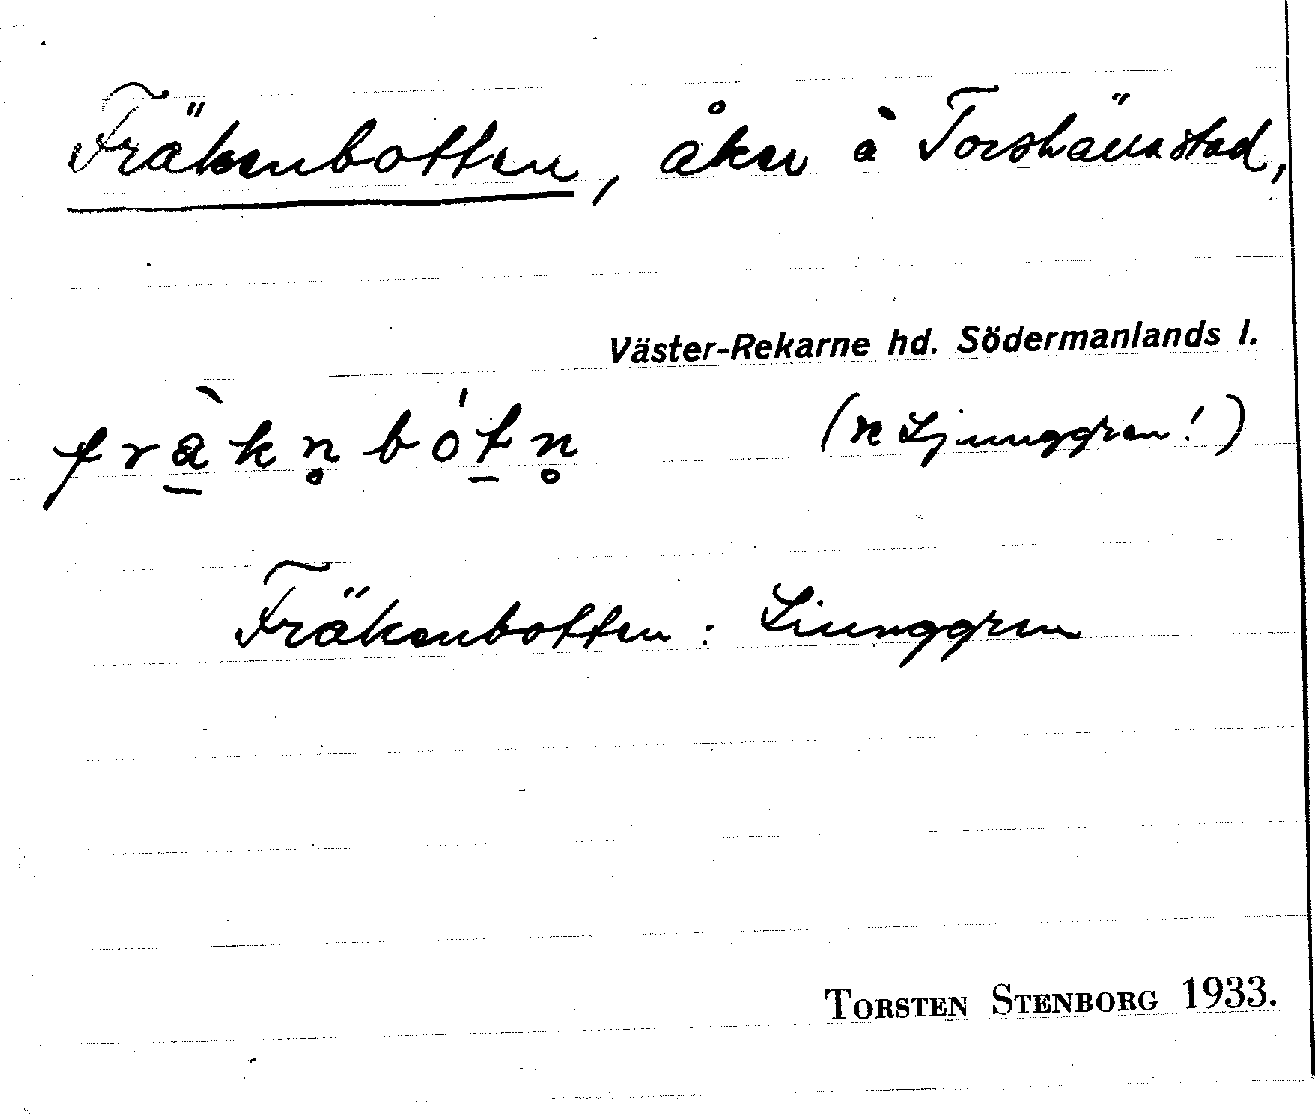 Fräkenbotten, åker å Torshälla stad,
Väster-Rekarne hd. Södermanlands l.
fràkn̥bótn̥ (n Ljunggren!)
Fräkenbotten: Ljunggren
TORSTEN STENBORG 1933.